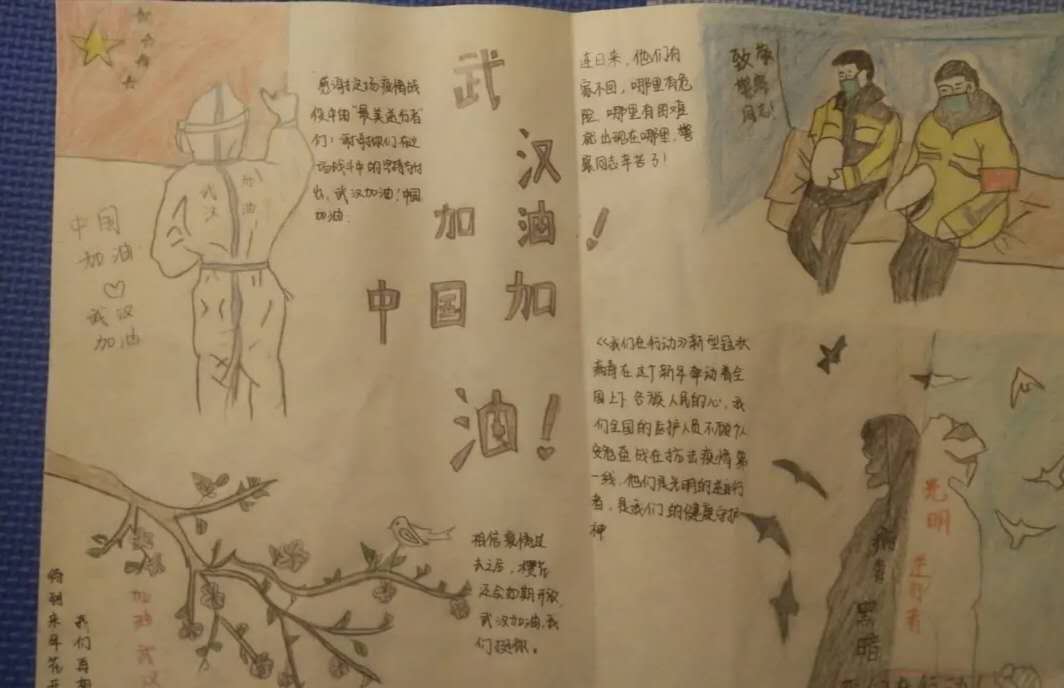 感谢这场疫情战
役中的"最美逆行者"
们：谢谢你们在这
场战斗中的坚持付
出，武汉加油！中国
加油。
武
汉
加油！
中国加
油！
中国
加油
武汉
加油
武汉
加油
连日来，他们有
家不回，哪里有危
险，哪里有困难
就出现在哪里，警
察同志辛苦了！
致敬
警察
同志！
《我们在行动》新型冠状
病毒在这个新年牵动着全
国上下各族人民的心，我
们全国的医护人员不顾个人
安危奋战在抗击疫情第
一线，他们是光明的逆行
者，是我们的健康守护
神
相信疫情过
去之后，樱花
还会如期开放，
武汉加油，我
们挺你。
待到来年花开
我们再相
加油武汉
光明
逆行者
病毒
黑暗
我们在行动！